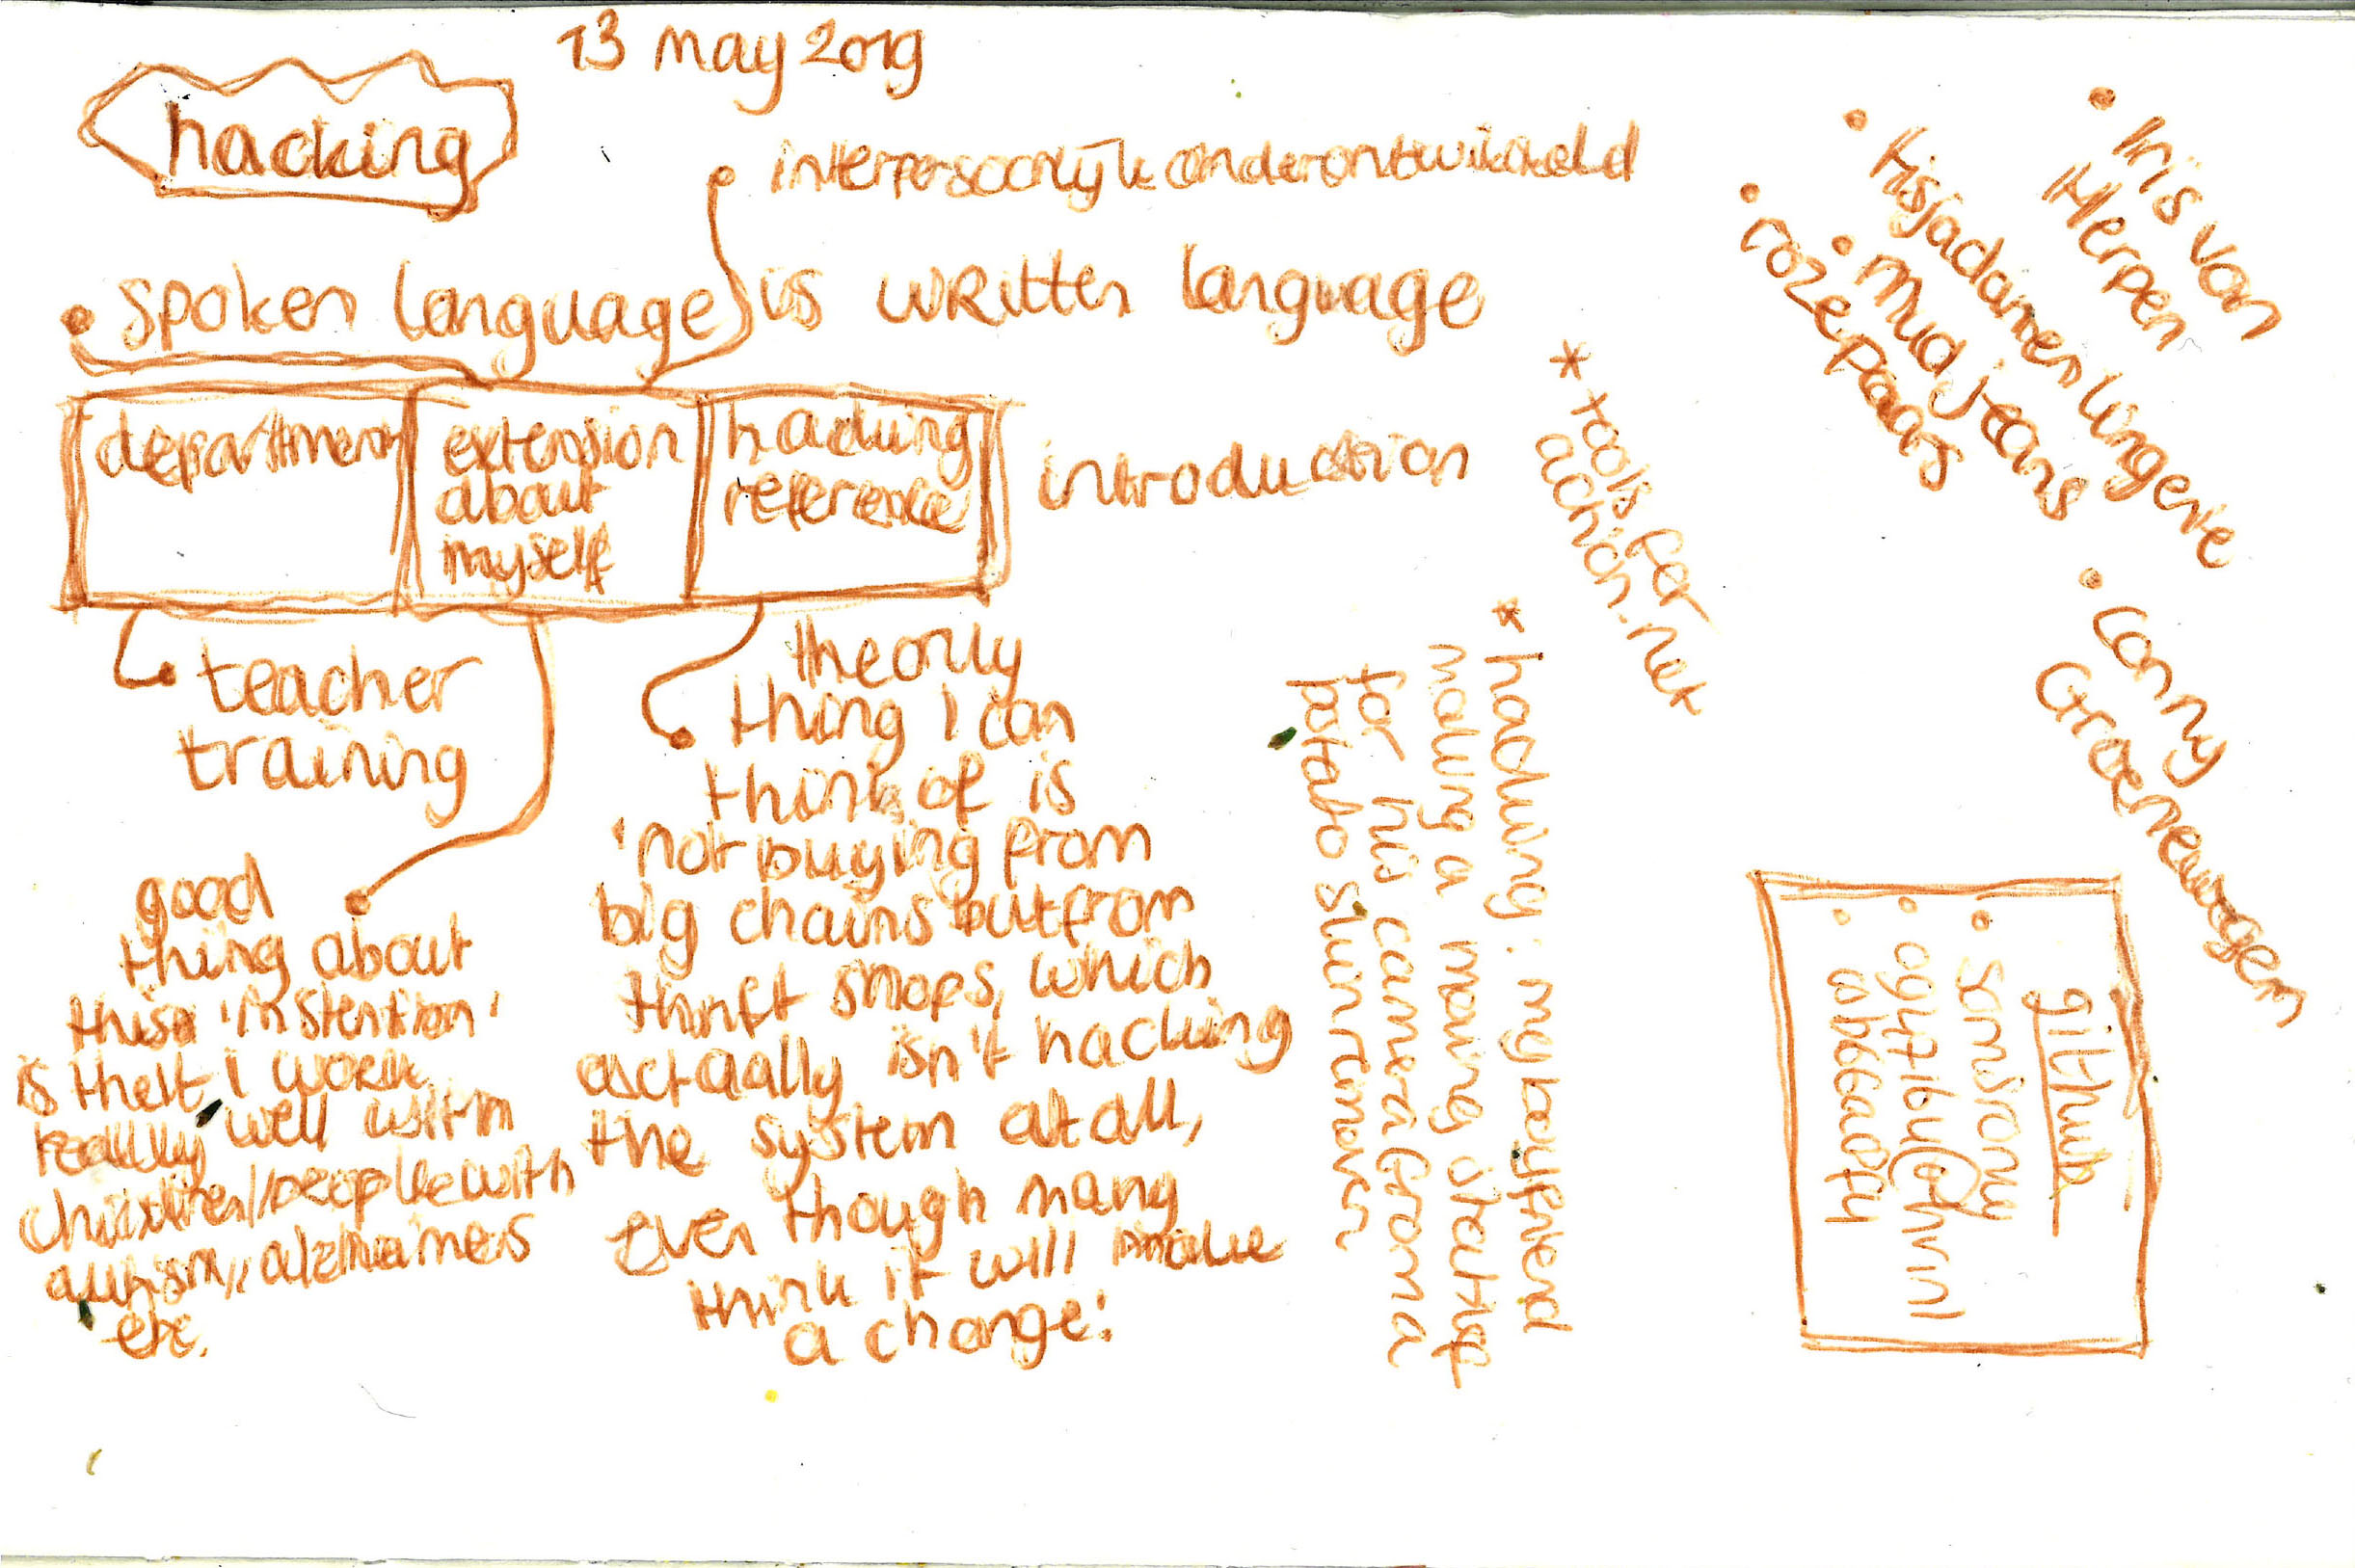 13 may 2019
hacking
interpersoonlijk onderontwikkeld
spoken language is written language
department
extension
about
myself
hacking
reference
introduction
teacher
training
good
thing about
this 'instention'
is that I work
really well with
children/people with
autism, alzheimers
etc.
the only
thing I can
think of is
'not buying from
big chains but from
thrift shops, which
actually isn't hacking
the system at all,
Even though many
think it will make
a change.'
* hacking: my boyfriend
making a moving statif
for his camera from a
potato skin remover
* tools for
action.net
• Iris van
Herpen
• lingerie
• Mud jeans
• roze paars
• Conny
Groenewegen
github